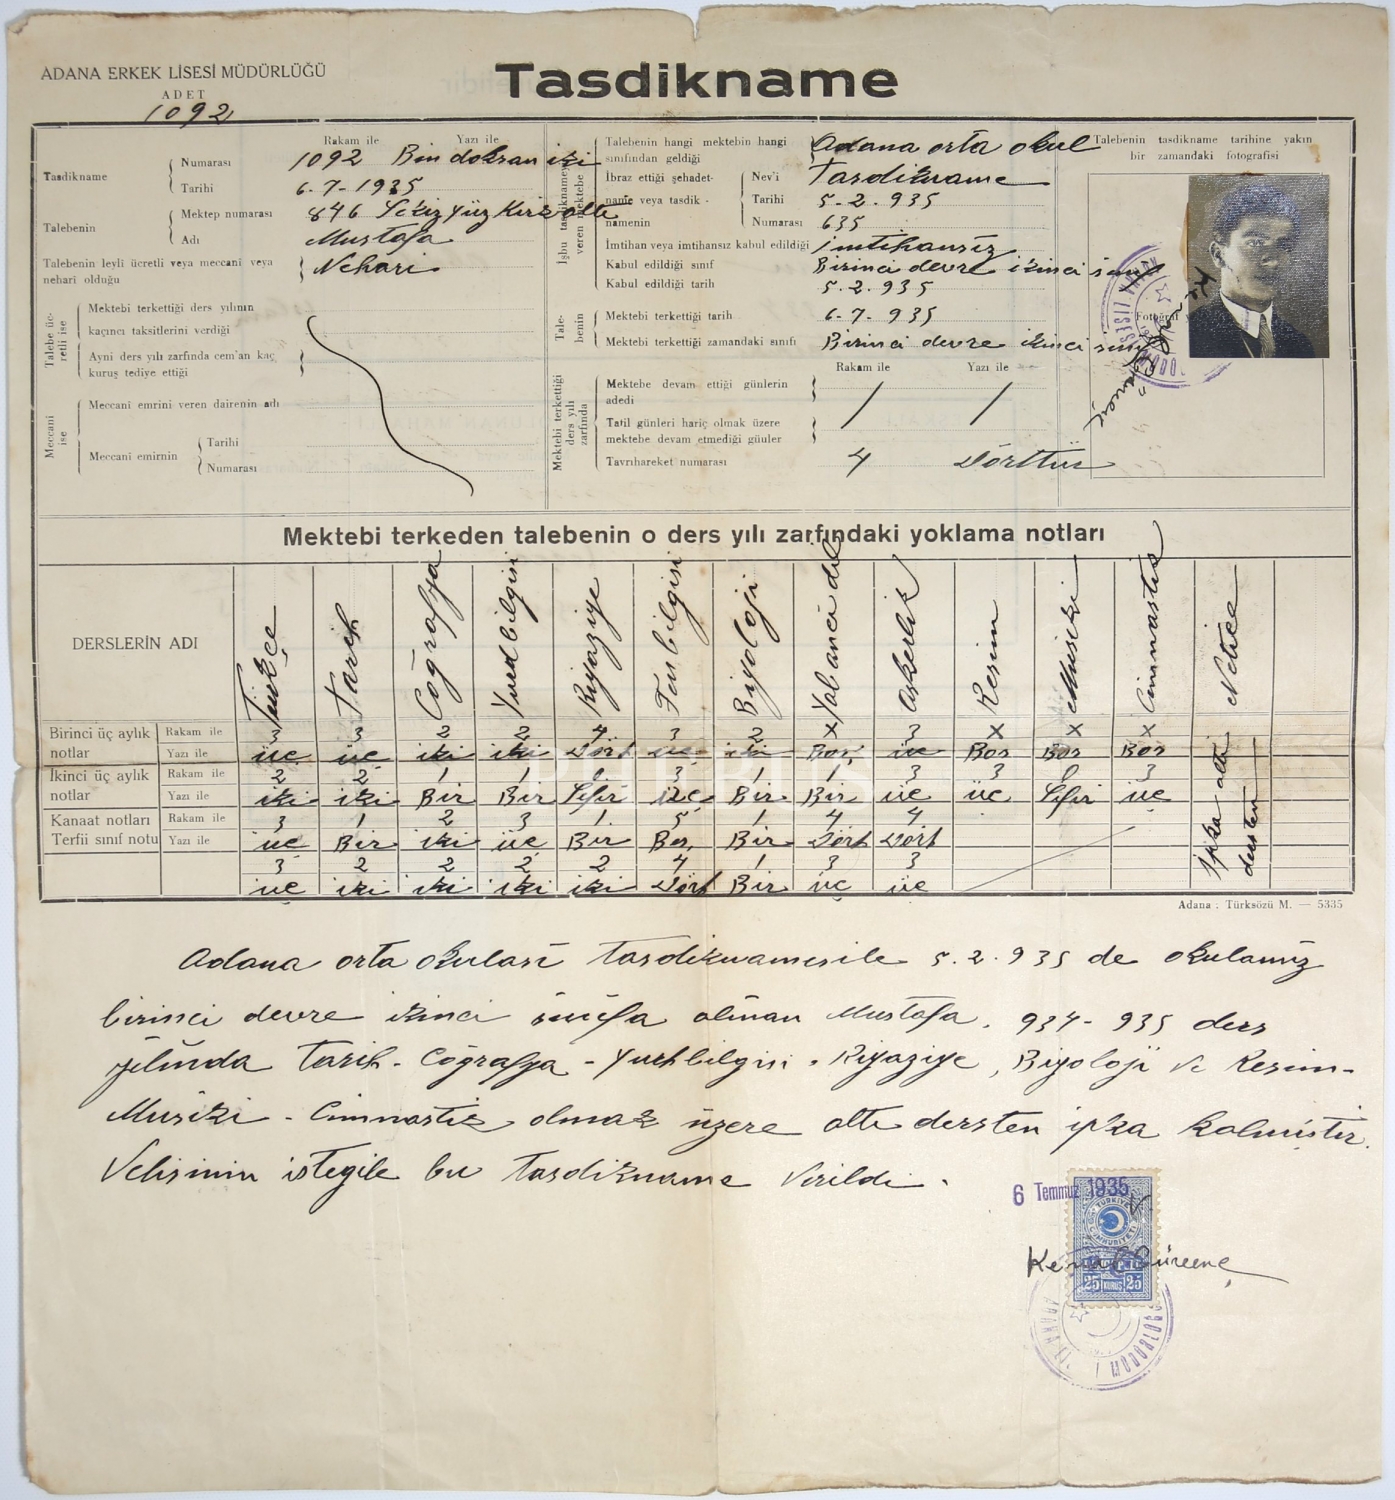 ADANA ERKEK LİSESİ MÜDÜRLÜĞÜ
ADET
1092
Tasdikname
Rakam ile Yazı ile
Tasdikname
Numarası 1092 Bin doksan iki
Tarihi 6-7-1935
Talebenin
Mektep numarası 846 Sekiz yüz kırk altı
Adı Mustafa
Talebenin leylî ücretli veya meccanî veya
neharî olduğu Nehari
Talebe ücretli ise
Mektebi terkettiği ders yılının
kaçıncı taksitlerini verdiği
Ayni ders yılı zarfında cem'an kaç
kuruş tediye ettiği
Meccanî ise
Meccanî emrini veren dairenin adı
Meccanî emirnin
Tarihi
Numarası
İşbu tasdiknameyi veren mektebe
Talebenin hangi mektebin hangi
sınıfından geldiği Adana orta okul
İbraz ettiği şehadet-
name veya tasdik-
namenin
Nev'i Tasdikname
Tarihi 5-2-935
Numarası 635
İmtihan veya imtihansız kabul edildiği imtihansız
Kabul edildiği sınıf Birinci devre ikinci sınıf
Kabul edildiği tarih 5.2.935
Talebenin
Mektebi terkettiği tarih 6-7-935
Mektebi terkettiği zamandaki sınıfı Birinci devre ikinci sınıf
Rakam ile Yazı ile
Mektebi terkettiği ders yılı zarfında
Mektebe devam ettiği günlerin
adedi / /
Tatil günleri hariç olmak üzere
mektebe devam etmediği günler
Tavrıhareket numarası 4 Dörttür
Talebenin tasdikname tarihine yakın
bir zamandaki fotografisi
Fotoğraf
Mektebi terkeden talebenin o ders yılı zarfındaki yoklama notları
DERSLERİN ADI Türkçe Tarih Coğrafya Yurd bilgisi Riyaziye Fen bilgisi Biyoloji Yabancı dil Askerlik Resim Musiki Cimnastik Netice
Birinci üç aylık notlar
Rakam ile 3 3 2 2 4 3 2 X 3 X X X
Yazı ile üç üç iki iki Dört üç iki Boş üç Boş Boş Boş
İkinci üç aylık notlar
Rakam ile 2 2 1 1 0 3 1 1 3 3 0 3
Yazı ile iki iki Bir Bir Sıfır üç Bir Bir üç üç Sıfır üç
Kanaat notları
Rakam ile 3 1 2 3 1 5 1 4 4
Terfii sınıf notu
Yazı ile üç Bir iki üç Bir Beş Bir Dört Dört
3 2 2 2 2 4 1 3 3
üç iki iki iki iki Dört Bir üç üç
İpka altı dersten
Adana : Türksözü M. — 5335
Adana orta okulası tasdiknamesile 5.2.935 de okulamız
birinci devre ikinci sınıfa alınan Mustafa. 934-935 ders
yılında Tarih - Coğrafya - Yurtbilgisi - Riyaziye, Biyoloji ve Resim-
Musiki - Cimnastik olmak üzere altı dersten ipka kalmıştır.
Velisinin isteğile bu tasdikname verildi.
6 Temmuz 1935
TÜRKİYE CUMHURİYETİ
25 KURUŞ 25